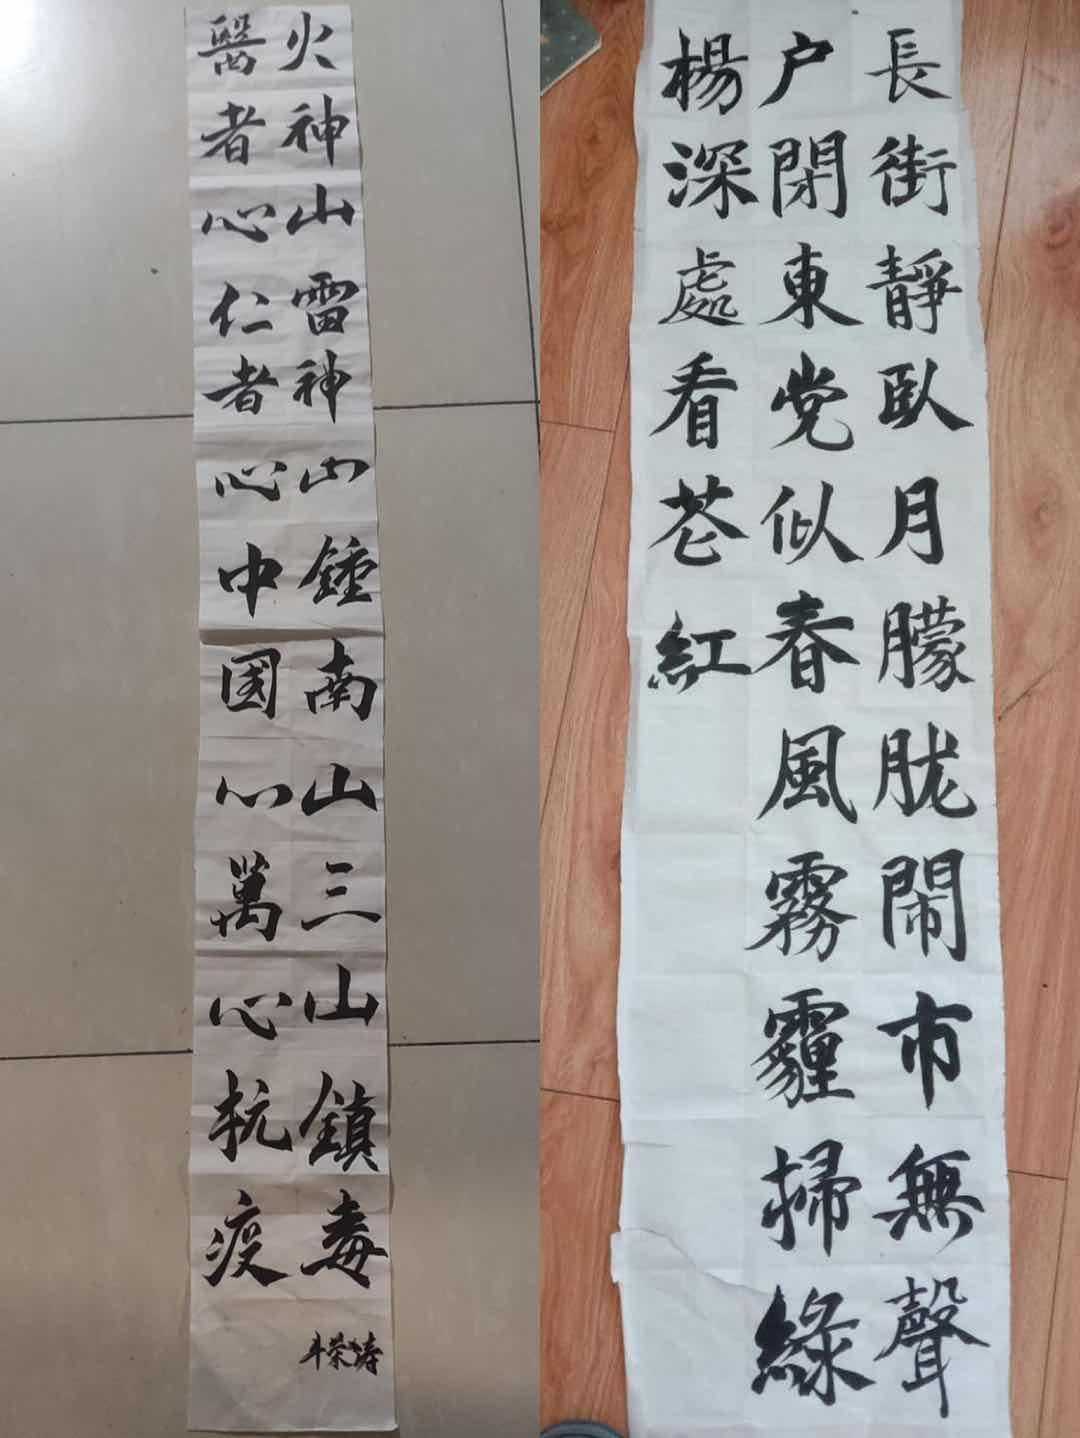 火神山雷神山鍾南山三山鎮毒
醫者心仁者心中國心萬心杭疫
斗荣涛
長街靜臥月朦胧鬧市無聲
户閉東党似春風霧霾掃綠
楊深處看花紅